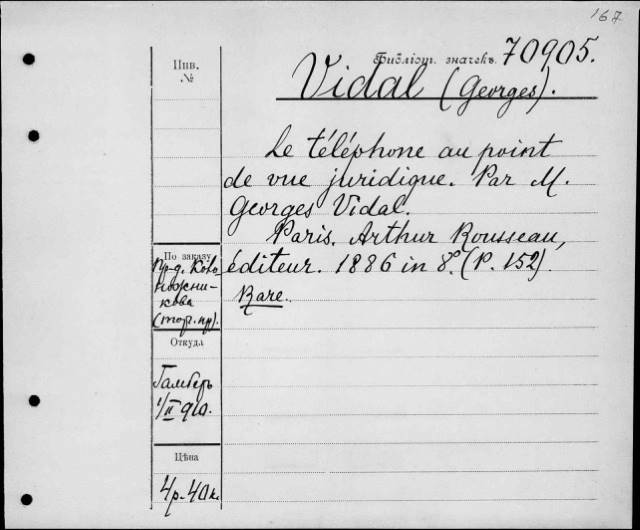 167
Библіот. значекъ. 70905.
Vidal (Georges).
Инв.
№
Le téléphone au point
de vue juridique. Par M.
Georges Vidal.
Paris. Arthur Rousseau,
éditeur. 1886 in 8º. (P. 152).
Rare.
По заказу
пр-д. Ково
ножни-
кова
(тор. пр).
Откуда
Гамберъ
1/II 910.
Цѣна
4р. 40к.